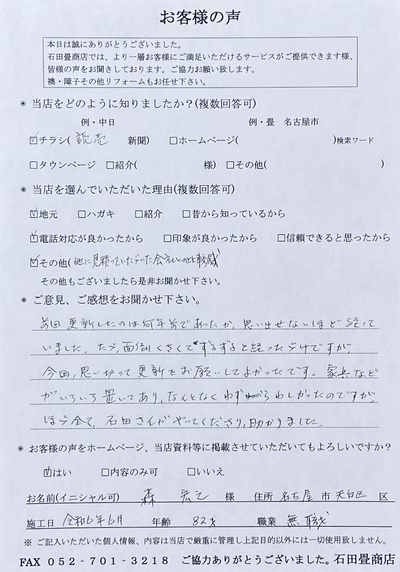 お客様の声
本日は誠にありがとうございました。
石田畳商店では、より一層お客様にご満足いただけるサービスがご提供できます様、
皆様の声をお聞きしております。ご協力お願い致します。
襖・障子その他リフォームもお任せ下さい。
※ 当店をどのように知りましたか？(複数回答可)
例・中日 例・畳 名古屋市
☑チラシ( 読売 新聞) □ホームページ( )検索ワード
□タウンページ □紹介( 様) □その他( )
※ 当店を選んでいただいた理由(複数回答可)
☑地元 □ハガキ □紹介 □昔から知っているから
☑電話対応が良かったから □印象が良かったから □信頼できると思ったから
☑その他(他に見積っていただいた会社
その他もございましたら是非お聞かせ下さい。
※ ご意見、ご感想をお聞かせ下さい。
前回更新したのは何年前であったか、思い出せないほど経って
いました。ただ、面倒くさくてずるずると経っただけですが、
今回、思い切って更新をお願いしてよかったです。家具など
がいろいろ置いてあり、なんとなくわずらわしかったのですが、
ほぼ全て、石田さんがやってくださり、助かりました。
※ お客様の声をホームページ、当店資料等に掲載させていただいてもよろしいですか？
☑はい □内容のみ可 □いいえ
お名前(イニシャル可) 森 様 住所 名古屋 市 天白区 区
施工日 令和6年6月 年齢 82才 職業 無職
※ ご記入いただいた個人情報、内容は当店で厳重に管理し上記目的以外には一切使用致しません。
FAX 052-701-3218 ご協力ありがとうございました。石田畳商店